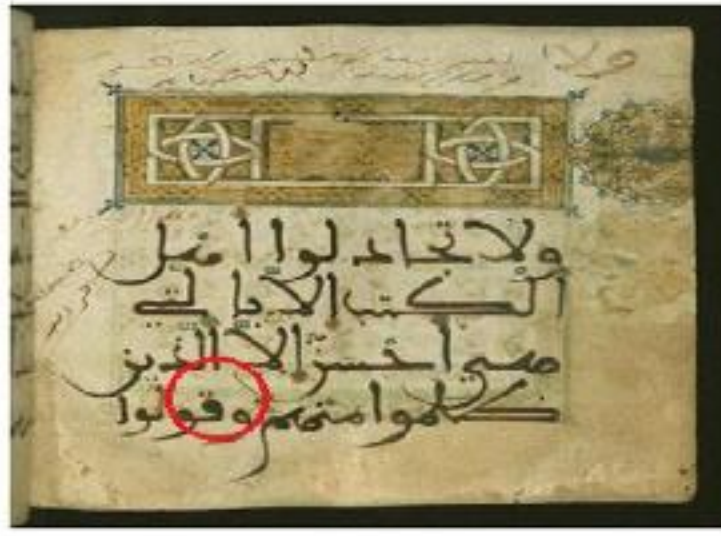 ولا تجادلوا اهل
الكتب الا با لتي
هي احسن الا الذين
ظلموا منهم وقولوا